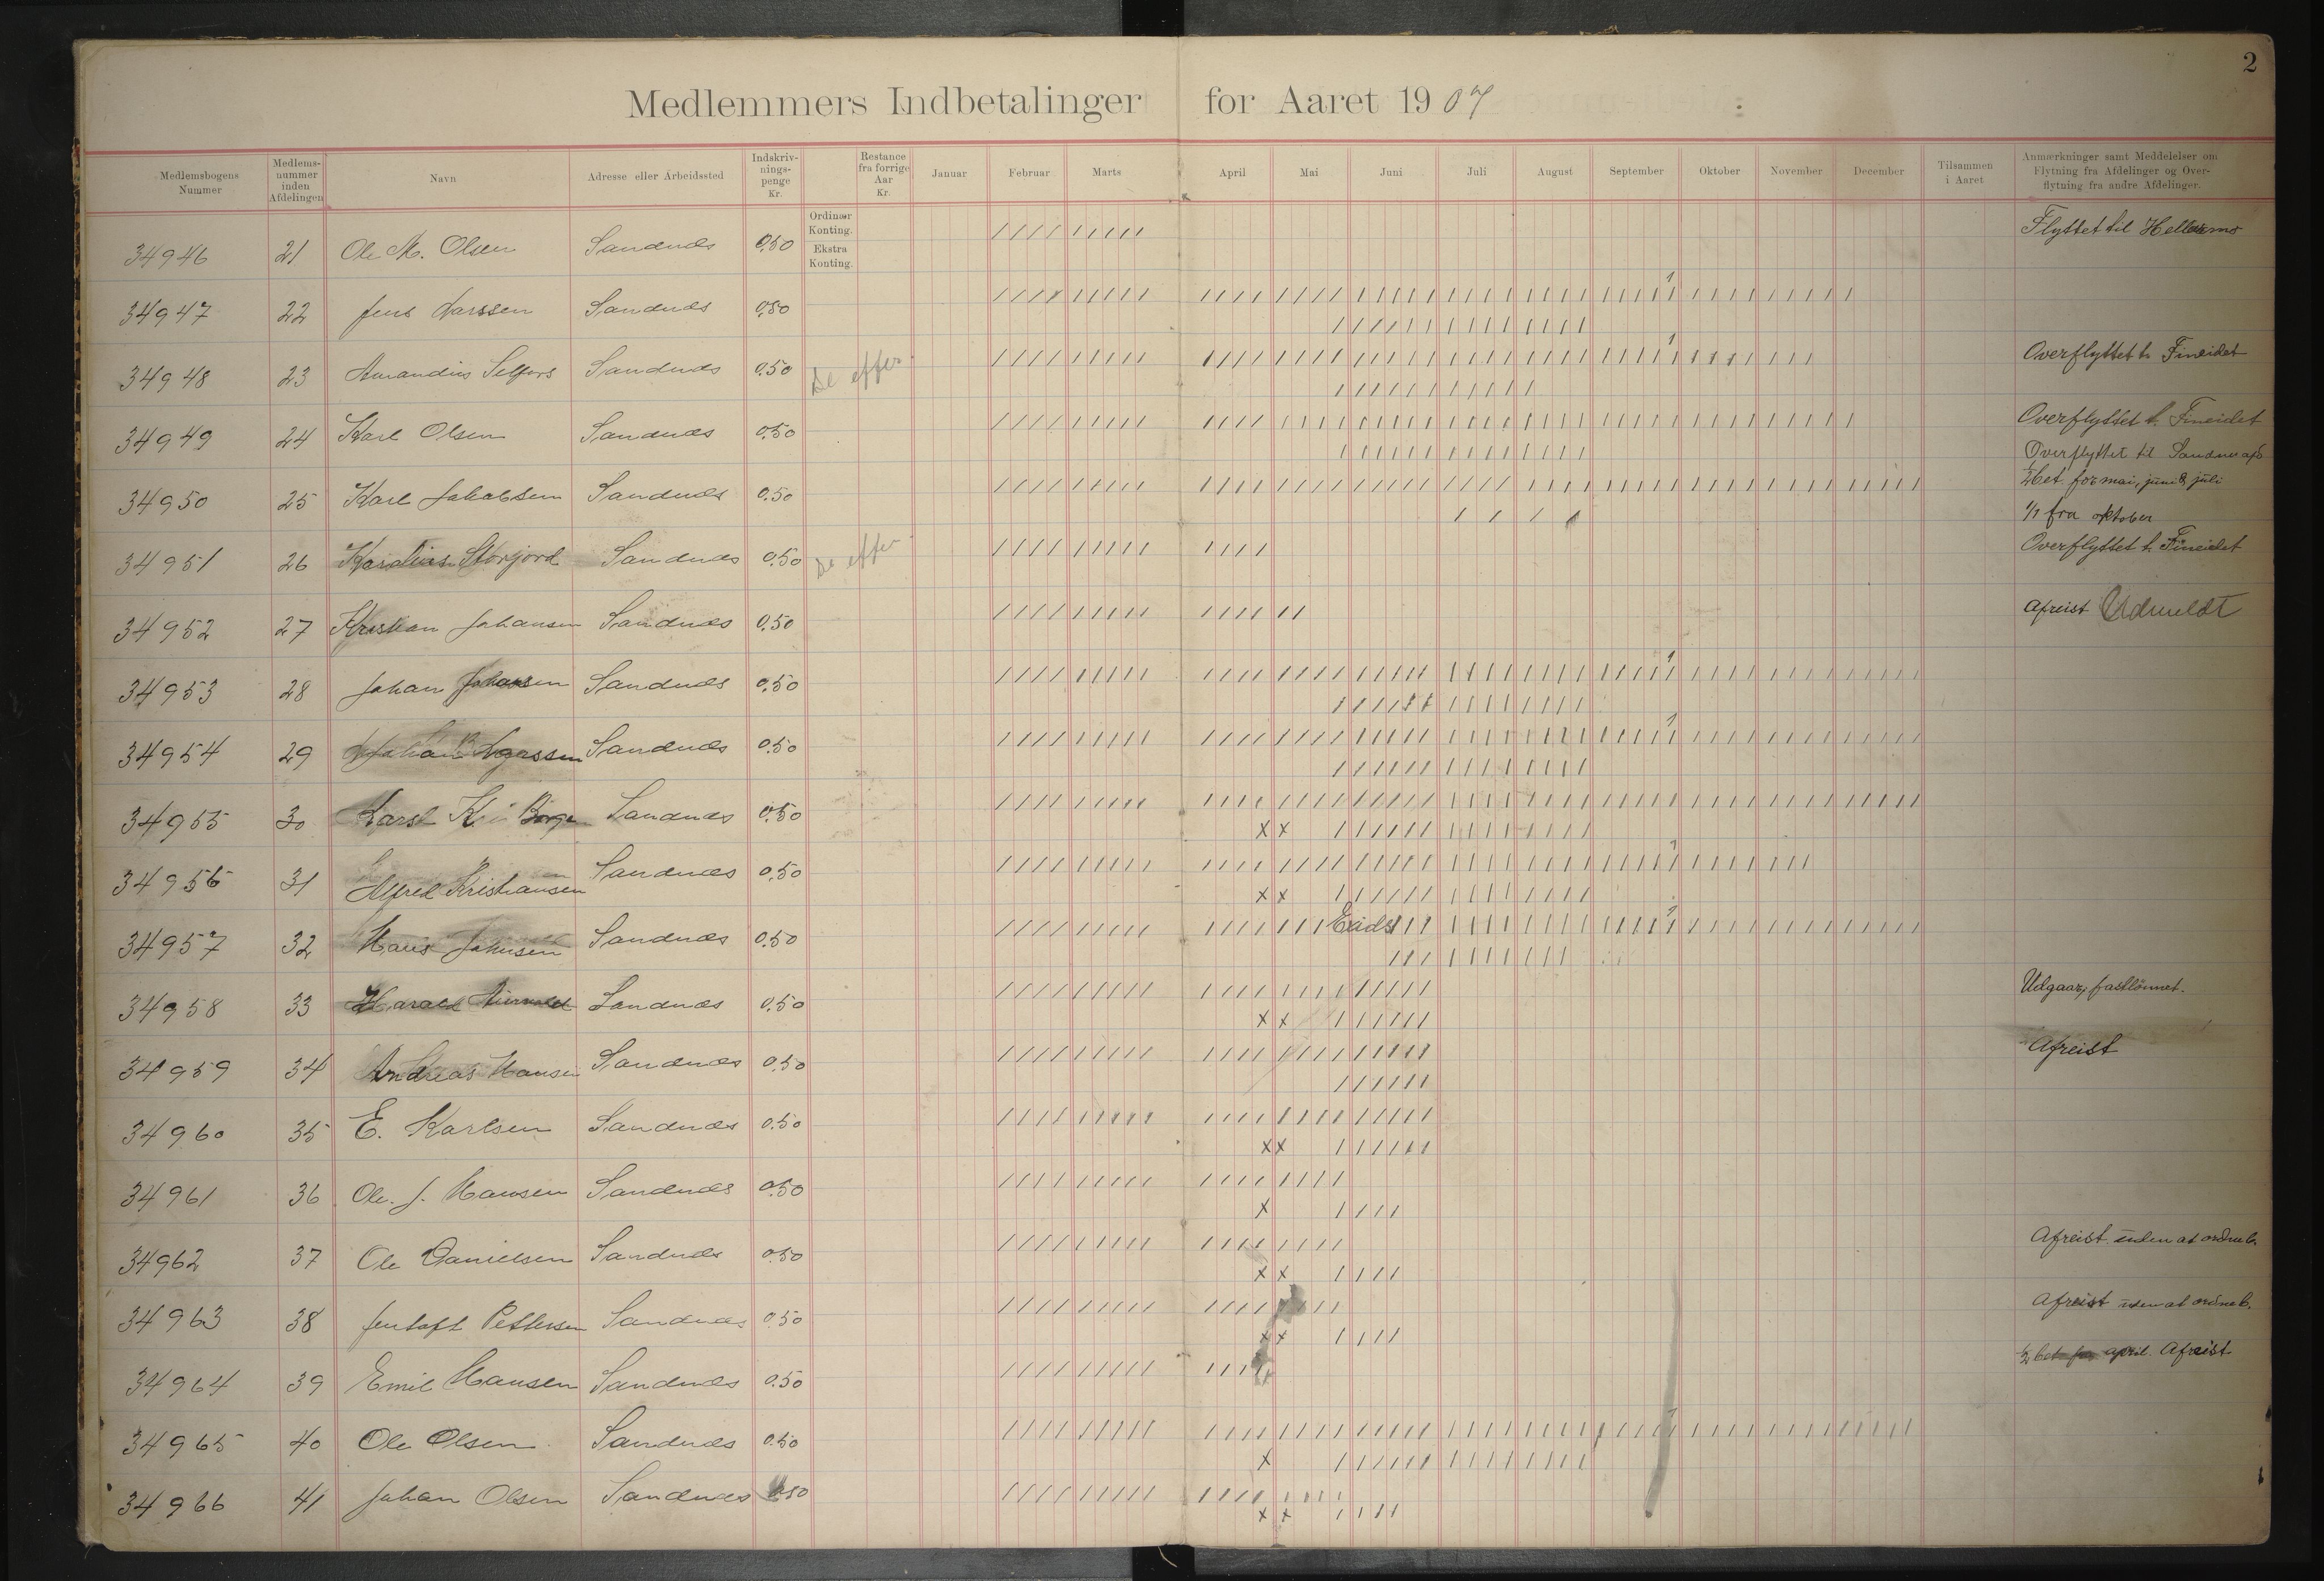 2
Medlemmers Indbetalinger for Aaret 1907
Medlemsbogens Nummer
Medlems-nummer inden Afdelingen
Navn
Adresse eller Arbeidssted
Indskriv-nings-penge Kr.
Restance fra forrige Aar Kr.
Januar
Februar
Marts
April
Mai
Juni
Juli
August
September
Oktober
November
December
Tilsammen i Aaret
Anmærkninger samt Meddelelser om Flytning fra Afdelinger og Over-flytning fra andre Afdelinger.
Ordinær Konting.
Ekstra Konting.
34946 21 Ole M. Olsen Sandnæs 0,50 Flyttet til
34947 22 Jens Larssen Sandnæs 0,50
34948 23 Amandus Selfors Sandnæs 0.50 Overflyttet t. Fineidet
34949 24 Karl Olsen Sandnæs 0.50 Overflyttet t. Fineidet
Overflyttet til
34950 25 Karl Jakobsen Sandnæs 0.50 ½ bet. for mai, juni & juli
1/1 fra oktober
34951 26 Storjord Sandnæs 0.50 Overflyttet t. Fineidet
34952 27 Kristian Johansen Sandnæs 0.50 Afreist Udmeldt
34953 28 Johan Johansen Sandnæs 0.50
34954 29 Sandnæs 0.50
34955 30 Sandnæs 0.50
34956 31 Alfred Kristiansen Sandnæs 0.50
34957 32 Hans Johnsen Sandnæs 0.50
34958 33 Harald Sandnæs 0.50 Udgaar, fastlönnet.
34959 34 Andreas Hansen Sandnæs 0.50 Afreist
34960 35 E. Karlsen Sandnæs 0.50
34961 36 Ole J. Hansen Sandnæs 0.50
34962 37 Ole Danielsen Sandnæs 0.50 Afreist uden at
34963 38 Jentoft Pettersen Sandnæs 0.50 Afreist uden at
34964 39 Emil Hansen Sandnæs 0.50 ½ bet april. Afreist
34965 40 Ole Olsen Sandnæs 0.50
34966 41 Johan Olsen Sandnæs 0.50